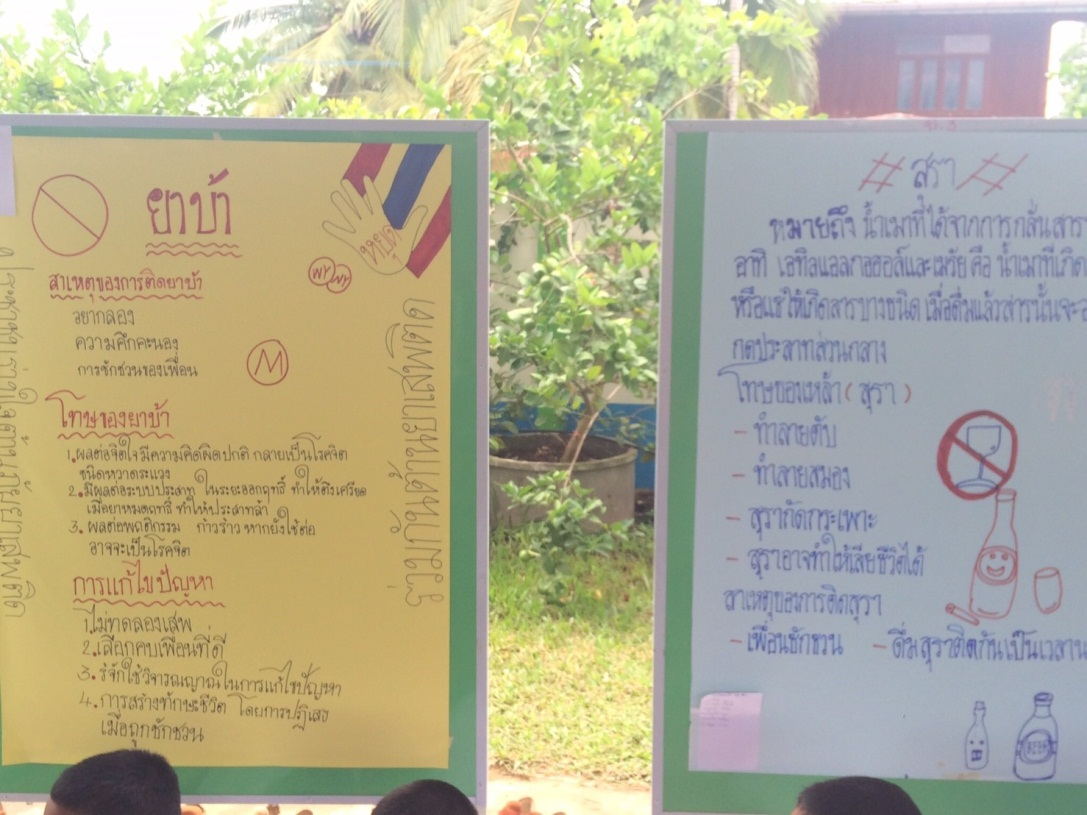 ยาบ้า
หยุด
สาเหตุของการติดยาบ้า
WY WY
อยากลอง
ความคึกคะนอง
การชักชวนของเพื่อน
M
โทษของยาบ้า
1.ผลต่อจิตใจ มีความคิดผิดปกติ กลายเป็นโรคจิต
ชนิดหวาดระแวง
2.มีผลต่อระบบประสาท ในระยะออกฤทธิ์ ทำให้ตึงเครียด
เมื่อยาหมดฤทธิ์ ทำให้ประสาทล้า
3. ผลต่อพฤติกรรม ก้าวร้าว หากยังใช้ต่อ
อาจจะเป็นโรคจิต
การแก้ไขปัญหา
1.ไม่ทดลองเสพ
2.เลือกคบเพื่อนที่ดี
3.รู้จักใช้วิจารณญาณในการแก้ไขปัญหา
4.การสร้างทักษะชีวิต โดยการปฏิเสธ
เมื่อถูกชักชวน
ต้านภัยยาเสพติด
# สุรา #
หมายถึง น้ำเมาที่ได้จากการกลั่นสาร
อาทิ เอทิลแอลกอฮอล์และเมรัย คือ น้ำเมาที่เกิด
หรือแช่ให้เกิดสารบางชนิด เมื่อดื่มแล้วสารนั้นจะอ
กดประสาทส่วนกลาง
โทษของเหล้า ( สุรา )
- ทำลายตับ
- ทำลายสมอง
- สุรากัดกระเพาะ
- สุราอาจทำให้เสียชีวิตได้
สาเหตุของการติดสุรา
- เพื่อนชักชวน - ดื่มสุราติดกันเป็นเวลาน
BEER